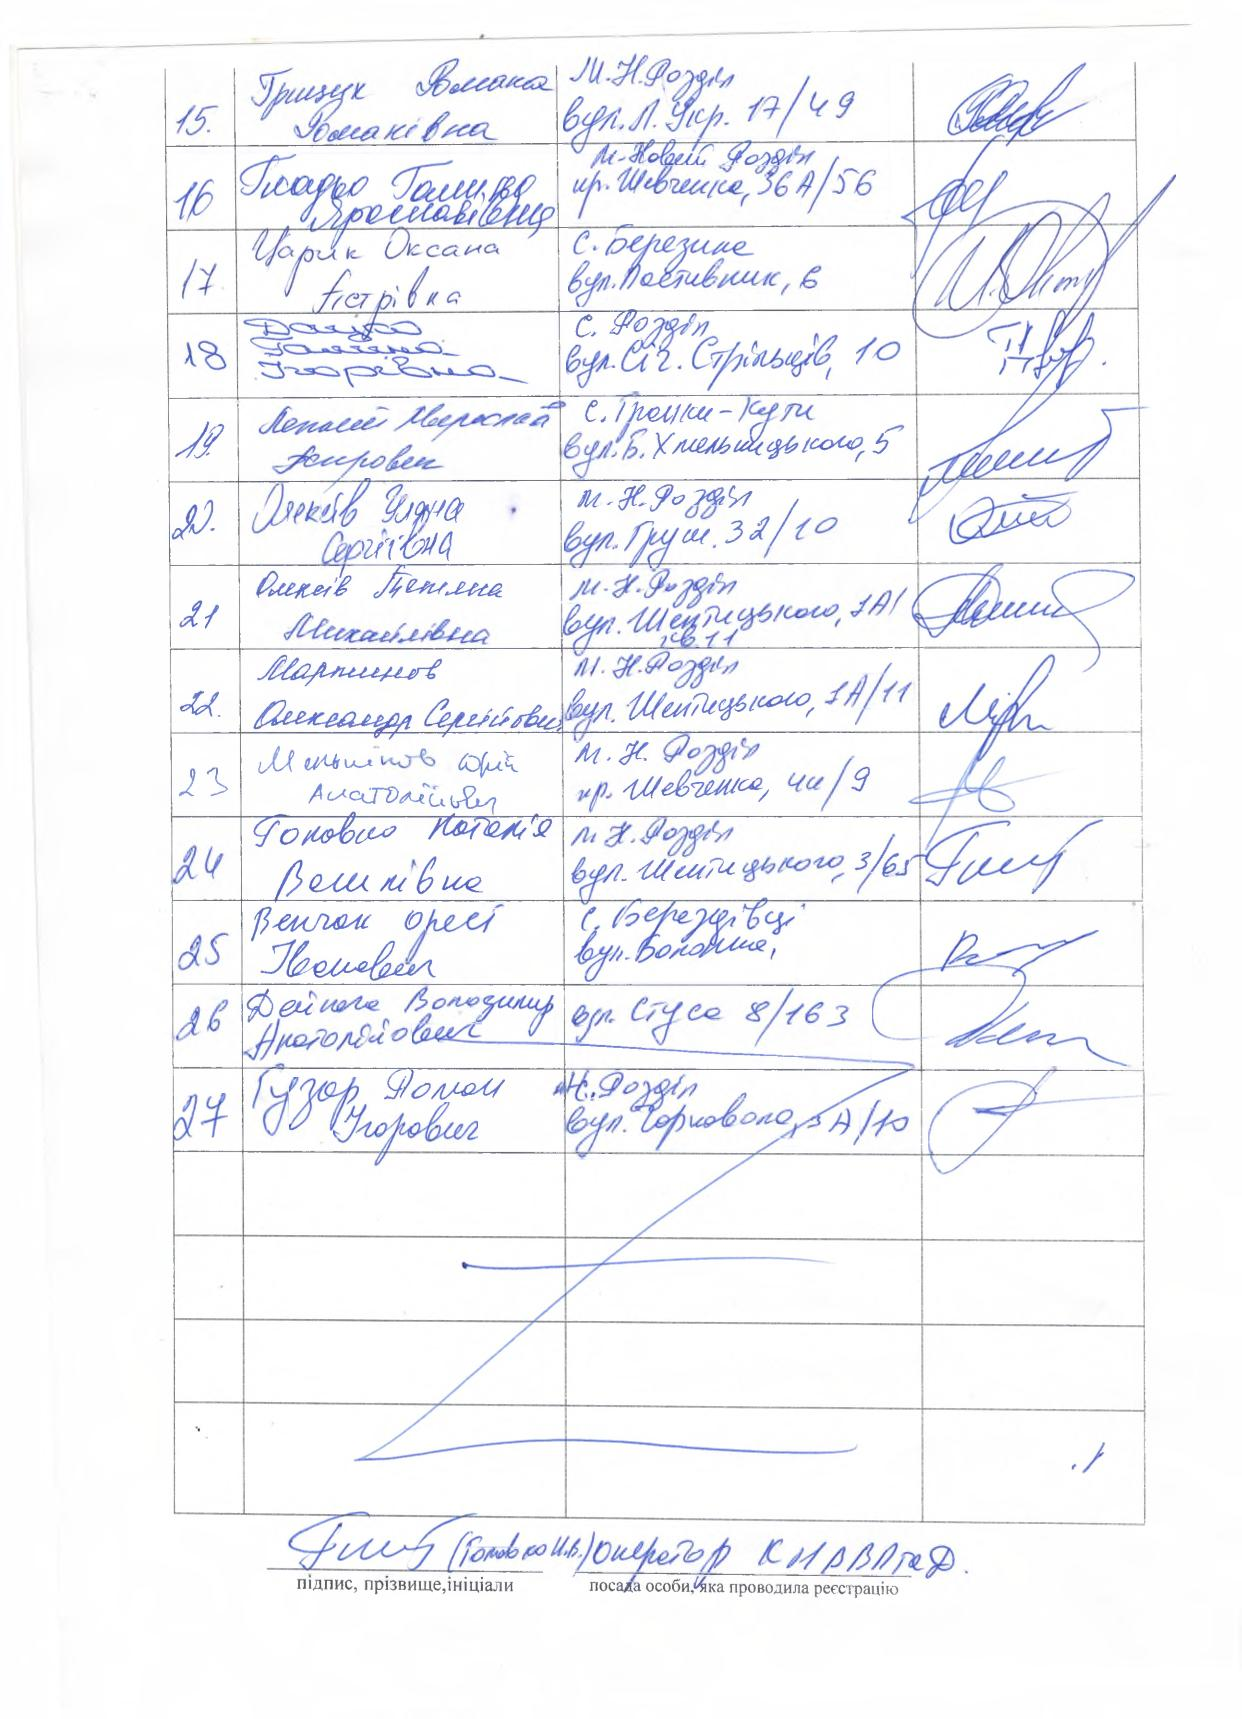 15.
Грицук Романа
Романівна
м. Н. Розділ
вул. Л. Укр. 17/49
16
Гладьо Галина
Ярославівна
м. Новий Розділ
пр. Шевченка, 36А/56
17.
Царик Оксана
Петрівна
с. Березина
вул. , 6
18
Дацко
Галина
Ігорівна
с. Розділ
вул. Січ. Стрільців, 10
19.
Мирослав
с. Гранки-Кути
вул. Б. Хмельницького, 5
20.
Олексів Уляна
Сергіївна
м. Н. Розділ
вул. Груш. 32/10
21
Олексів Тетяна
Михайлівна
м. Н. Розділ
вул. Шептицького, 1А/
кв. 11
22.
Мартинов
Олександр Сергійович
м. Н. Розділ
вул. Шептицького, 1А/11
23
Мельніков Юрій
Анатолійович
м. Н. Розділ
пр. Шевченка, 4н/9
24
Головко Наталія
Василівна
м. Н. Розділ
вул. Шептицького, 3/65
25
Венчак Орест
Іванович
с. Берездівці
вул. Болонна,
26
Дейнега Володимир
Анатолійович
вул. Стуса 8/163
27
Гузар Роман
Ігорович
м. Н. Розділ
вул. Чорновола, 3А/10
(Головко Н.В.) оператор КНАВЛтаД.
підпис, прізвище,ініціали
посада особи, яка проводила реєстрацію